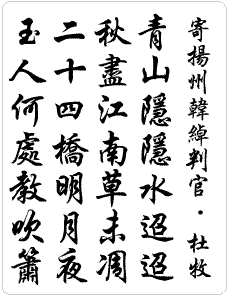 寄揚州韓綽判官·杜牧
青山隱隱水迢迢
秋盡江南草未凋
二十四橋明月夜
玉人何處教吹簫